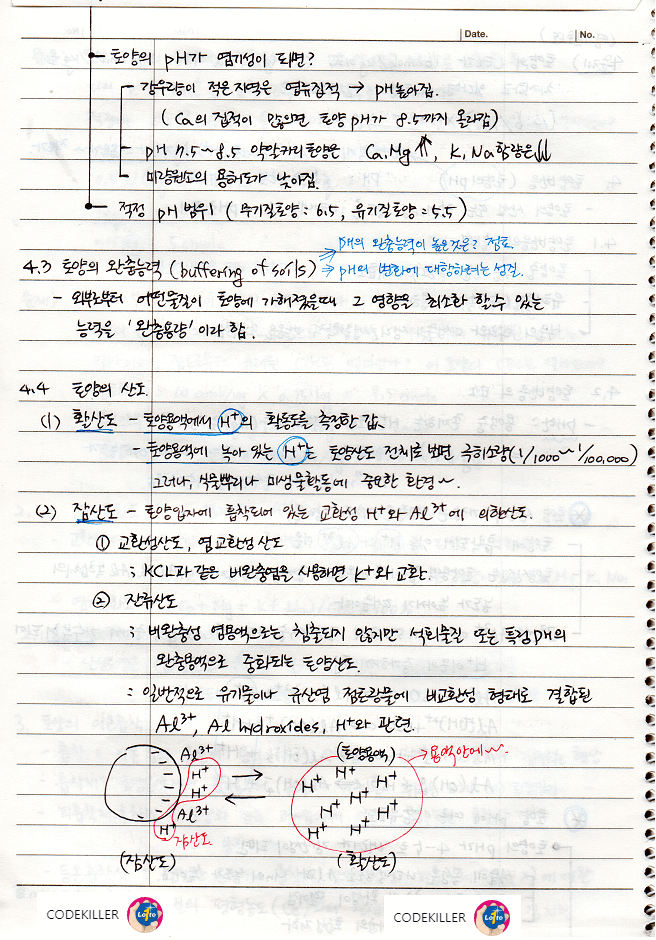 Date. No.
토양의 pH가 염기성이 되면?
강우량이 적은 지역은 염류집적 → pH높아짐.
(Ca의 집적이 많으면 토양 pH가 8.5까지 올라감)
pH 7.5~8.5 약알카리토양은 Ca, Mg ↑↑, K, Na 함량은 ↓↓
미량원소의 용해도가 낮아짐.
적정 pH 범위 (무기질토양 : 6.5, 유기질토양 = 5.5)
pH의 완충능력이 높은것은? 점토.
4.3 토양의 완충능력 (buffering of soils) → pH의 변화에 대항하려는 성질.
- 외부로부터 어떤물질이 토양에 가해졌을때 그 영향을 최소화 할 수 있는
능력을 '완충용량' 이라 함.
4.4 토양의 산도.
(1) 활산도 - 토양용액에서 H⁺의 활동도를 측정한 값.
- 토양용액에 녹아 있는 H⁺는 토양산도 전체로 보면 극히소량 (1/1000~1/100,000)
그러나, 식물뿌리나 미생물활동에 중요한 환경~.
(2) 잠산도 - 토양입자에 흡착되어 있는 교환성 H⁺와 Al³⁺에 의한산도.
① 교환성산도, 염교환성산도
; KCL과 같은 비완충염을 사용하면 K⁺와 교환.
② 잔류산도
; 비완충성 염용액으로는 침출되지 않지만 석회물질 또는 특정 pH의
완충용액으로 중화되는 토양산도.
: 일반적으로 유기물이나 규산염 점토광물에 비교환성 형태로 결합된
Al³⁺, Al hydroxides, H⁺와 관련.
Al³⁺ (토양용액) → 용액안에~.
H⁺ H⁺ H⁺
H⁺ H⁺ H⁺
Al³⁺ H⁺ H⁺
H⁺ H⁺ H⁺
잠산도.
(잠산도) (활산도)
CODEKILLER Lotto CODEKILLER Lotto